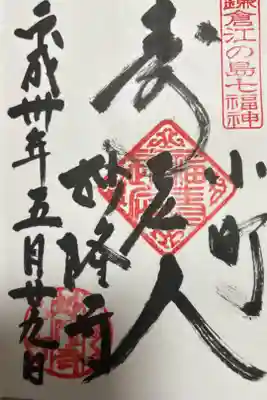 鎌倉江の島七福神
小町
寿老人
妙隆寺
平成卅年五月廿九日